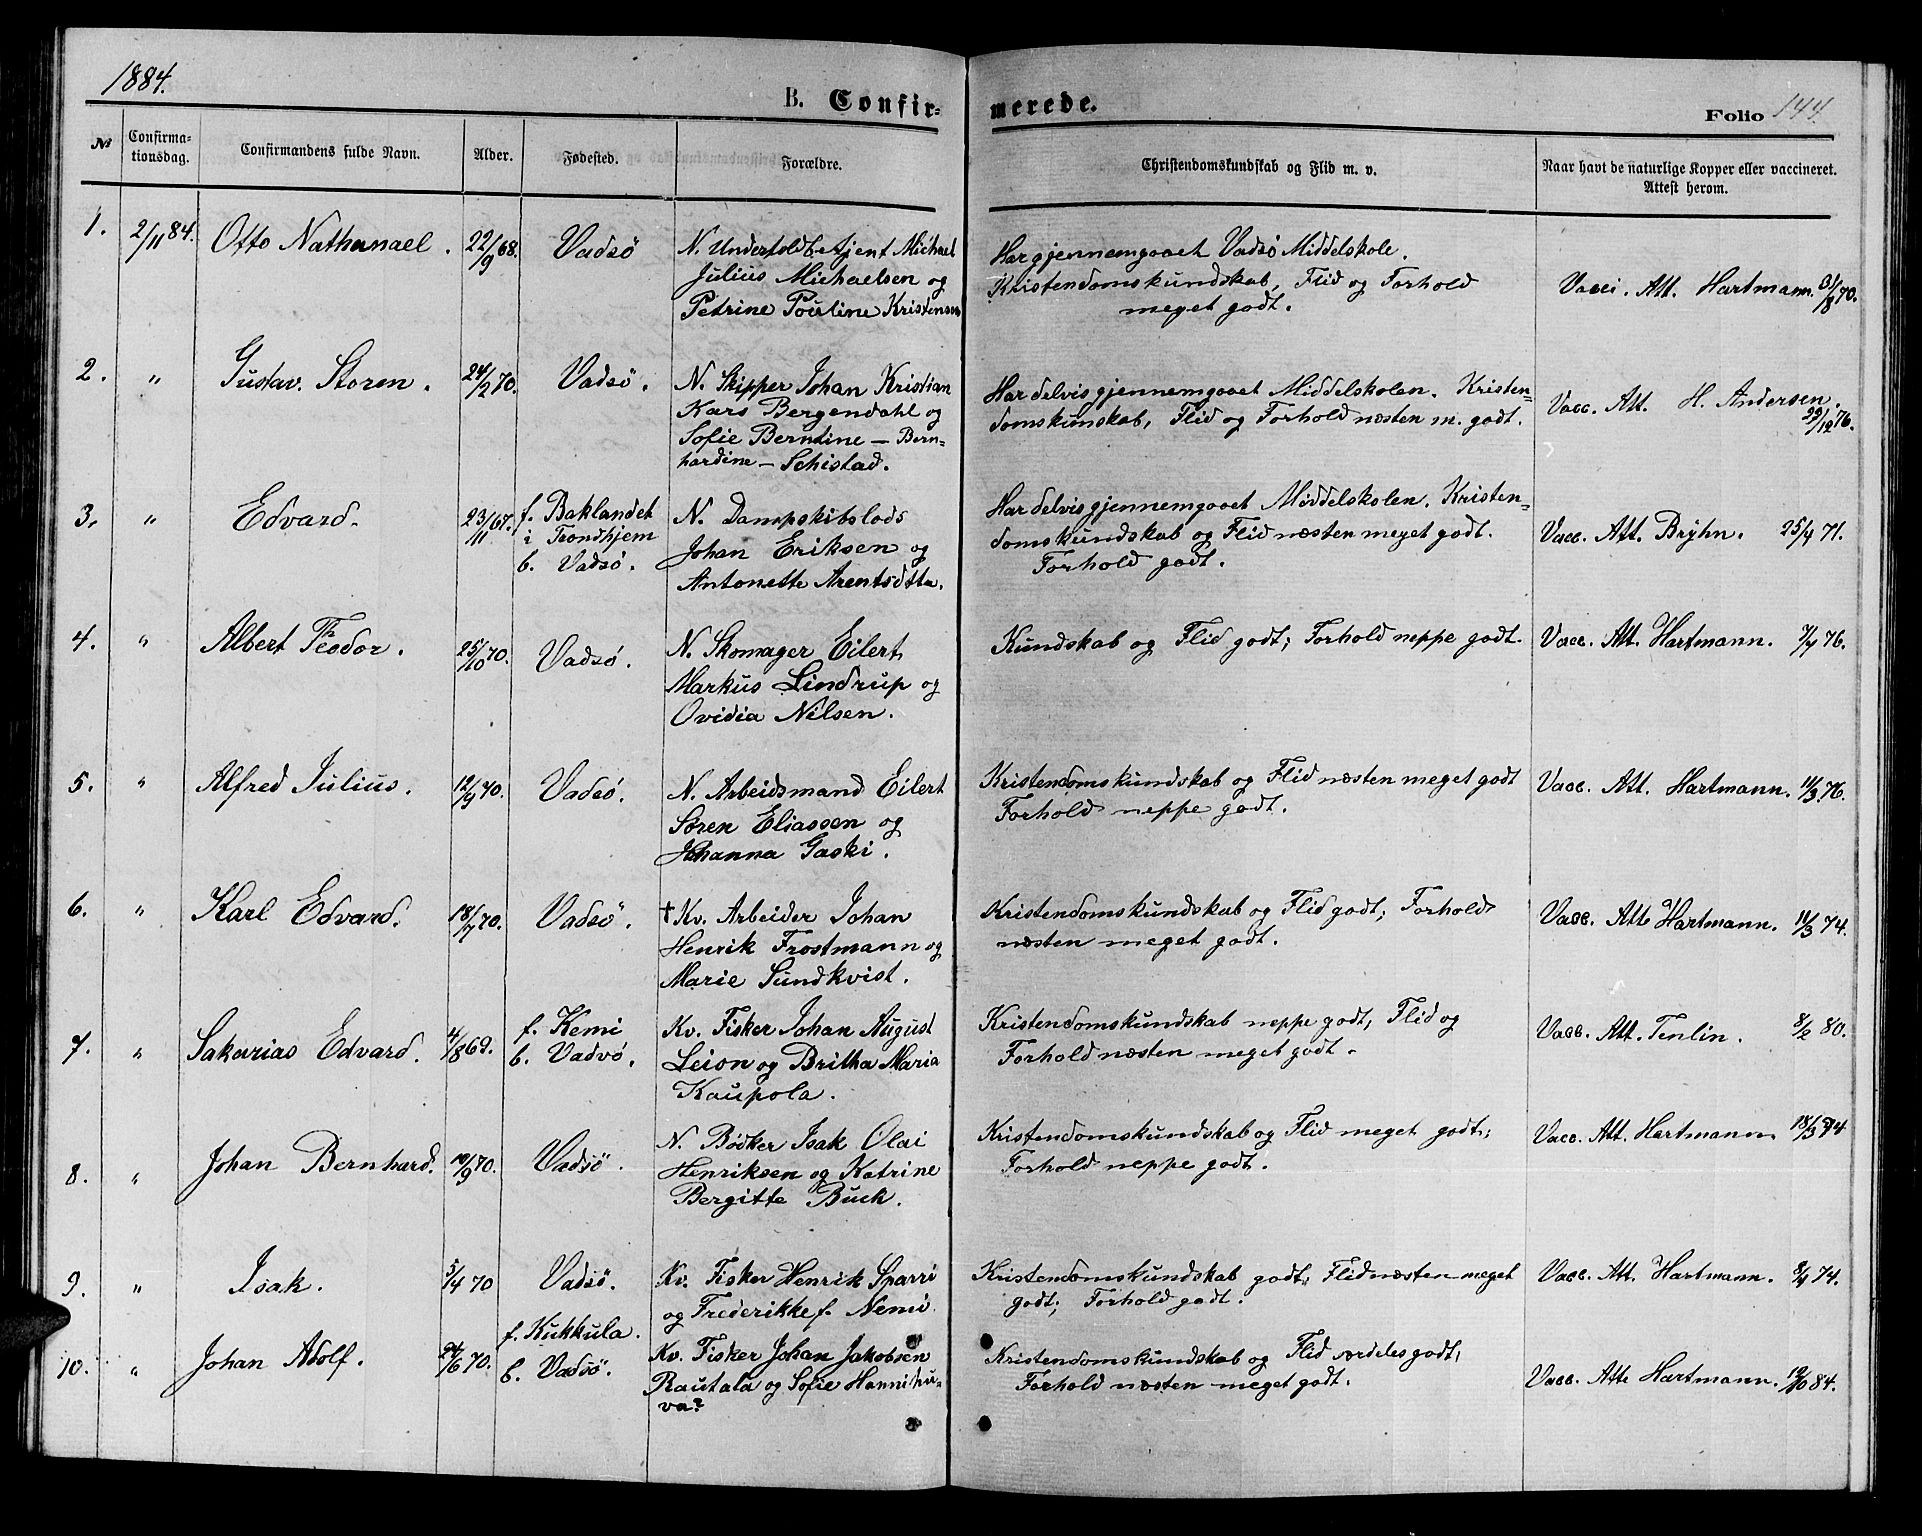 1884.
B. Confir-
merede.
Folio 144.
No
Confirma-
tionsdag.
Confirmandens fulde Navn.
Alder.
Fødested.
Forældre.
Christendomskundskab og Flid m. v.
Naar havt de naturlige Kopper eller vaccineret.
Attest herom.
1. 2/11 84. Otto Nathanael. 22/9 68. Vadsö
N. Undertoldbetjent Michael
Julius Michaelsen og
Petrine Pouline Kristensen
Har gjennemgaaet Vadsö Middelskole.
Kristendomskundskab, Flid og Forhold
meget godt.
Vacci. Att. Hartmann. 31/8 70.
2. " Gustav. Storm. 24/2 70. Vadsö.
N. Skipper Johan Kristian
Kars Bergendahl og
Sofie Berntine - Bern-
hardine - Schistad.
Har delvis gjennemgaaet Middelskolen. Kristen-
domskunskab, Flid og Forhold næsten m. godt.
Vacc. Att. H. Andersen.
22/12 76.
3. " Edvard. 23/11 67.
f. Baklandet
i Trondhjem
b. Vadsö.
N. Dampskibslods
Johan Eriksen og
Antonette Arentsdtter.
Har delvis gjennemgaaet Middelskolen. Kristen-
domskundskab og Flid næsten meget godt.
Forhold godt.
Vacc. Att. Bryhn. 25/4 71.
4. " Albert Teodor. 25/10 70. Vadsö.
N. Skomager Eilert
Markus Lindrup og
Ovidia Nilsen.
Kundskab og Flid godt; Forhold neppe godt.
Vacc. Att. Hartmann. 7/4 76.
5. " Alfred Julius. 12/9 70. Vadsö.
N. Arbeidsmand Eilert
Sören Eliassen og
Johanna Gaski.
Kristendomskundskab og Flid næsten meget godt
Forhold neppe godt.
Vacc. Att. Hartmann. 11/3 76.
6. " Karl Edvard. 18/7 70. Vadsö.
† Kv. Arbeider Johan
Henrik Frostmann og
Marie Sundkvist.
Kristendomskundskab og Flid godt; Forhold
næsten meget godt.
Vacc. Att. Hartmann. 11/3 74.
7. " Sakarias Edvard. 4/8 69.
f. Kemi
b. Vadsö.
Kv. Fisker Johan August
Leion og Britha Maria
Kaupola.
Kristendomskundskab neppe godt, Flid og
Forhold næsten meget godt.
Vacc. Att. Tenlin. 8/2 80.
8. " Johan Bernhard. 10/9 70. Vadsö.
N. Bödker Isak Olai
Henriksen og Katrine
Bergitte Buck.
Kristendomskundskab og Flid meget godt;
Forhold neppe godt.
Vacc. Att. Hartmann 18/3 74.
9. " Isak. 5/4 70 Vadsö.
Kv. Fisker Henrik Sparri
og Frederikke f. Nemi.
Kristendomskundskab godt; Flid næsten meget
godt; Forhold godt.
Vacc. Att. Hartmann. 8/4 74.
10. " Johan Adolf. 24/6 70.
f. Kukkula.
b. Vadsö.
Kv. Fisker Johan Jakobsen
Rautala og Sofie Hannihu-
va?
Kristendomskundskab og Flid særdeles godt,
Forhold næsten meget godt.
Vacc. Att. Hartmann. 12/10 84.